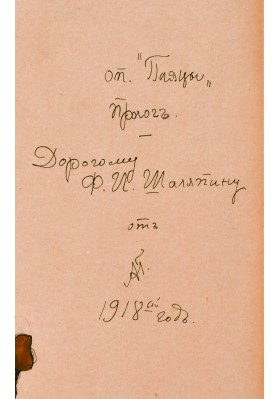 оп. "Паяцы„
Прологъ.
Дорогому
Ф. И. Шаляпину
отъ
1918ый годъ.